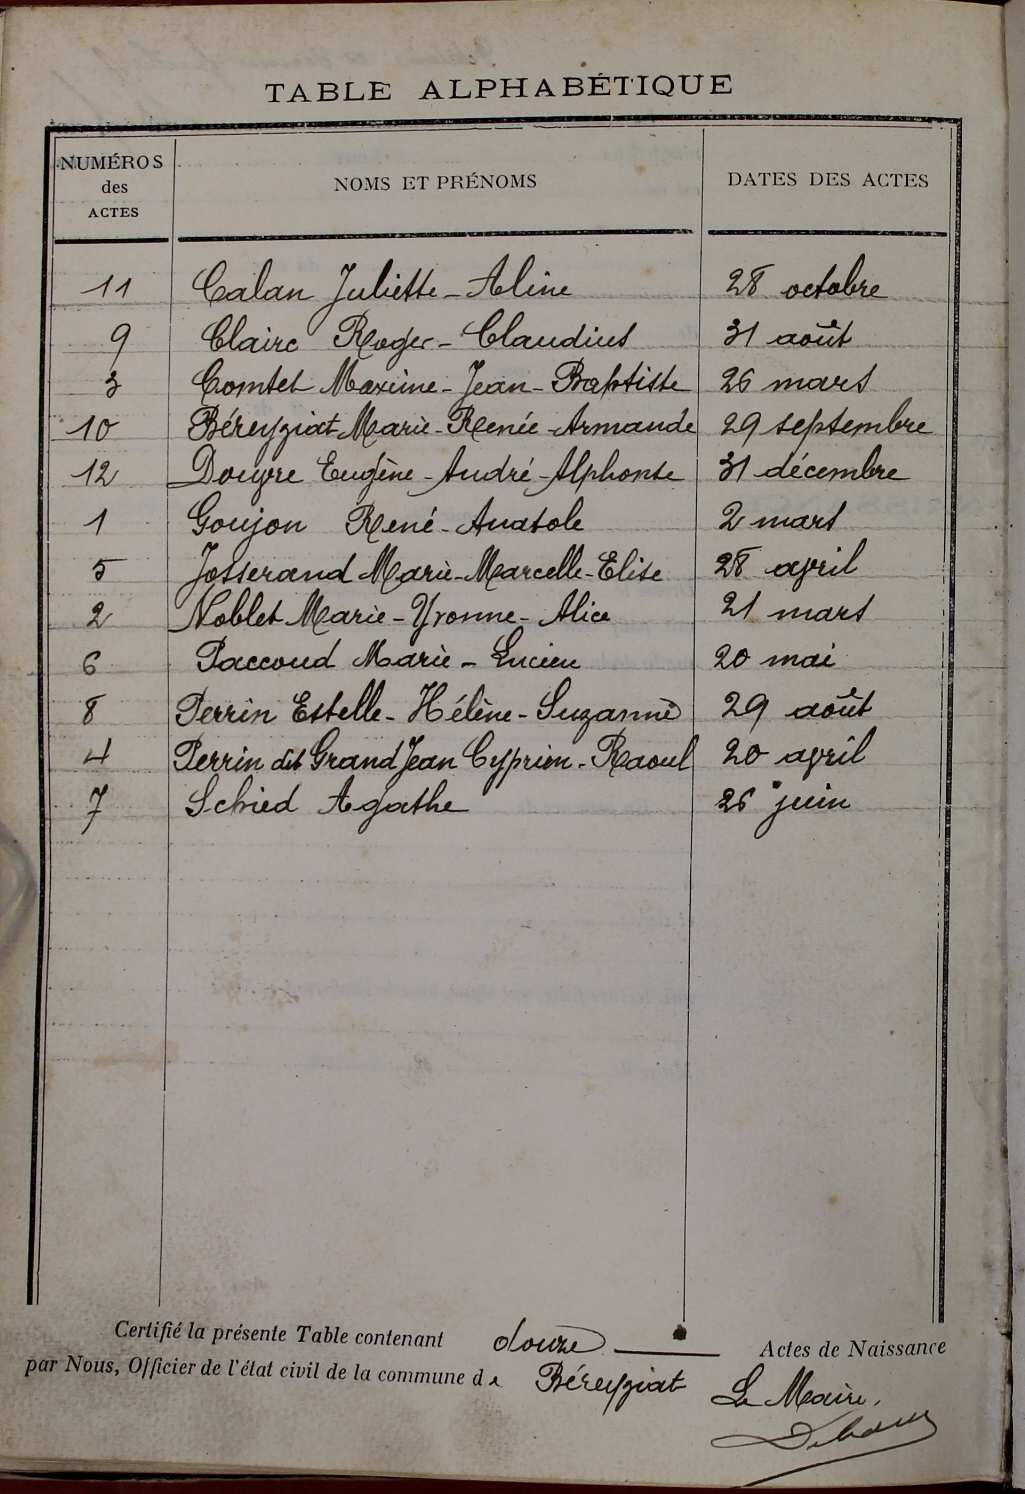 TABLE ALPHABÉTIQUE
NUMÉROS des ACTES NOMS ET PRÉNOMS DATES DES ACTES
11 Calan Juliette - Aline 28 octobre
9 Claire Roger - Claudius 31 août
3 Comtet Maxime - Jean - Baptiste 26 mars
10 Béreyziat Marie - Renée - Armande 29 septembre
12 Douvre Eugène - André - Alphonse 31 décembre
1 Goujon René - Anatole 2 mars
5 Josserand Marie - Marcelle - Elise 28 avril
2 Noblet Marie - Yvonne - Alice 21 mars
6 Paccoud Marie - Lucien 20 mai
8 Perrin Estelle - Hélène - Suzanne 29 août
4 Perrin dit Grand Jean Cyprien - Raoul 20 avril
7 Schied Agathe 26 juin
Certifié la présente Table contenant douze Actes de Naissance
par Nous, Officier de l'état civil de la commune de Béreyziat Le Maire,